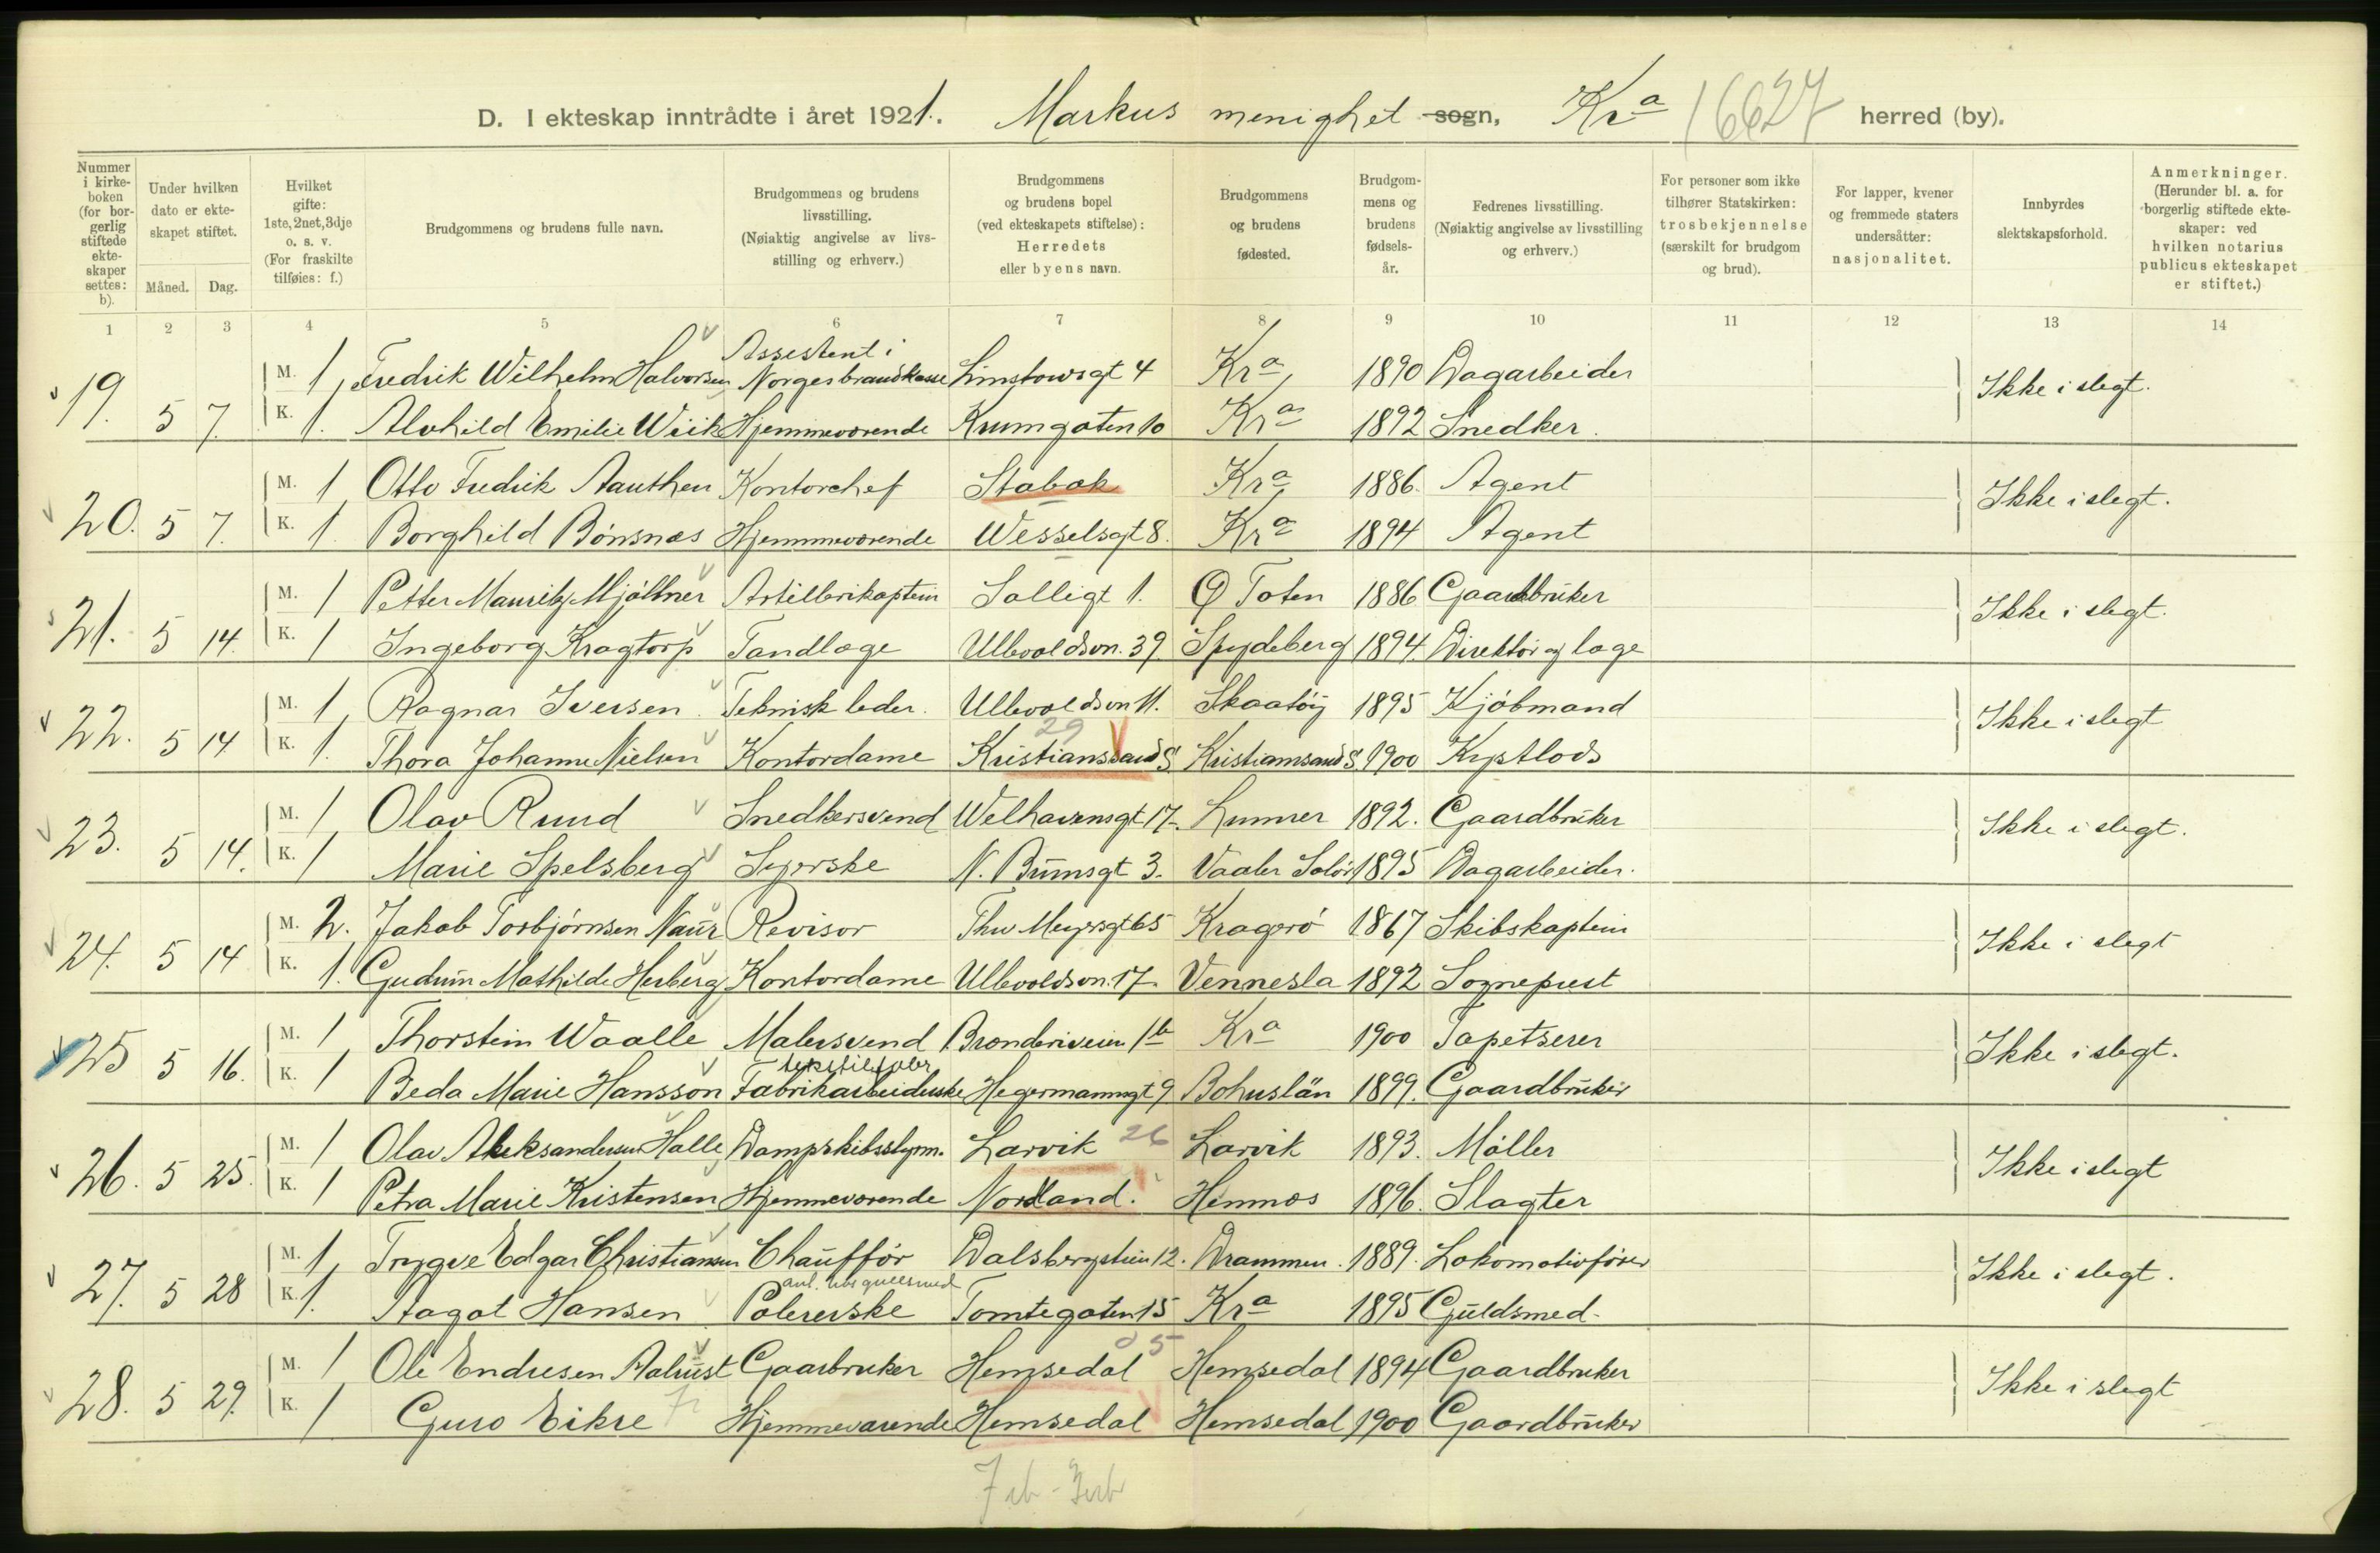 D. I ekteskap inntrådte i året 1921. Markus menighet sogn, Kra 16627 herred (by).
Nummer i kirkeboken (for borgerlig stiftede ekteskaper settes: b).
Under hvilken dato er ekteskapet stiftet.
Måned. Dag.
Hvilket gifte: 1ste, 2net, 3dje o. s. v. (For fraskilte tilføies: f.)
Brudgommens og brudens fulle navn.
Brudgommens og brudens livsstilling. (Nøiaktig angivelse av livsstilling og erhverv.)
Brudgommens og brudens bopel (ved ekteskapets stiftelse): Herredets eller byens navn.
Brudgommens og brudens fødested.
Brudgommens og brudens fødselsår.
Fedrenes livsstilling. (Nøiaktig angivelse av livsstilling og erhverv.)
For personer som ikke tilhører Statskirken: trosbekjennelse (særskilt for brudgom og brud).
For lapper, kvener og fremmede staters undersåtter: nasjonalitet.
Innbyrdes slektskapsforhold.
Anmerkninger. (Herunder bl. a. for borgerlig stiftede ekteskaper: ved hvilken notarius publicus ekteskapet er stiftet.)
1 2 3 4 5 6 7 8 9 10 11 12 13 14
Assestent i
M. 1, Fredrik Wilhelm Halvorsen Norges brandkasse Linstowsgt 4 Kra, 1890 Dagarbeider
19. 5 7. K. 1. Alvhild Emilie Wiik Hjemmeværende Krumgaten 10 Kra 1892 Snedker. Ikke i slegt.
M. 1 Otto Fredrik Aauthen Kontorchef Stabæk Kra 1886. Agent
20. 5 7. K. 1. Borghild Bønsnæs Hjemmeværende Wesselsgt 8. Kra 1894 Agent Ikke i slegt.
M. 1 Petter Mauritz Mjöllner Artillerikaptein Solligt 1. Ø Toten 1886 Gaardbruker
21. 5 14. K. 1 Ingeborg Kragtorp Tandlæge Ullevoldsvn. 39. Spydeberg 1894. Direktør og læge Ikke i slegt.
M. 1, Ragnar Iversen Teknisk leder. Ullevoldsvn 11. Skaatøy 1895 Kjøbmand
29
22. 5 14 K. 1. Thora Johanne Nielsen Kontordame Kristianssand S. Kristiansand S. 1900 Kystlods Ikke i slegt
M. 1 Olav Ruud Snedkersvend Welhavensgt 17. Lunner 1892. Gaardbruker
23. 5 14. K. 1 Marie Spelsberg Syerske N. Bumsgt 3. Vaaler Solør 1895 Dagarbeider. Ikke i slegt.
M. 2. Jakob Torbjørnsen Naur Revisor Thv Meyersgt 65 Kragerø 1867 Skibskaptein
24. 5 14 K. 1. Gudrun Mathilde Herberg Kontordame Ullevoldsvn. 17. Vennesla 1892 Sogneprest Ikke i slegt
M. 1 Thorstein Waalle Malersvend Brænderiveien 1b Kra 1900 Tapetserer
tekstilfabr
25 5 16. K. 1 Beda Marie Hansson Fabrikarbeiderske Hegermannsgt 9 Bohuslän 1899. Gaardbruker Ikke i slegt.
M. 1 Olav Aleksandersen Halle Dampskibsstyrm. Larvik 26 Larvik 1893. Møller
26. 5 25. K. 1 Petra Marie Kristensen Hjemmeværende Nordland. Hemnæs 1896. Slagter Ikke i slegt
M. 1, Trygve Edgar Christiansen Chauffør Dalsbergstien 12. Drammen. 1889. Lokomotivfører
27. 5 28 K. 1. Aagot Hansen Polererske Tomtegaten 15 Kra 1895 Guldsmed. Ikke i slegt.
5
M. 1 Ole Endresen Aalrust Gaarbruker Hemsedal Hemsedal 1894 Gaardbruker
28. 5 29. K. 1 Guro Eikre Hjemmeværende Hemsedal Hemsedal 1900 Gaardbruker Ikke i slegt